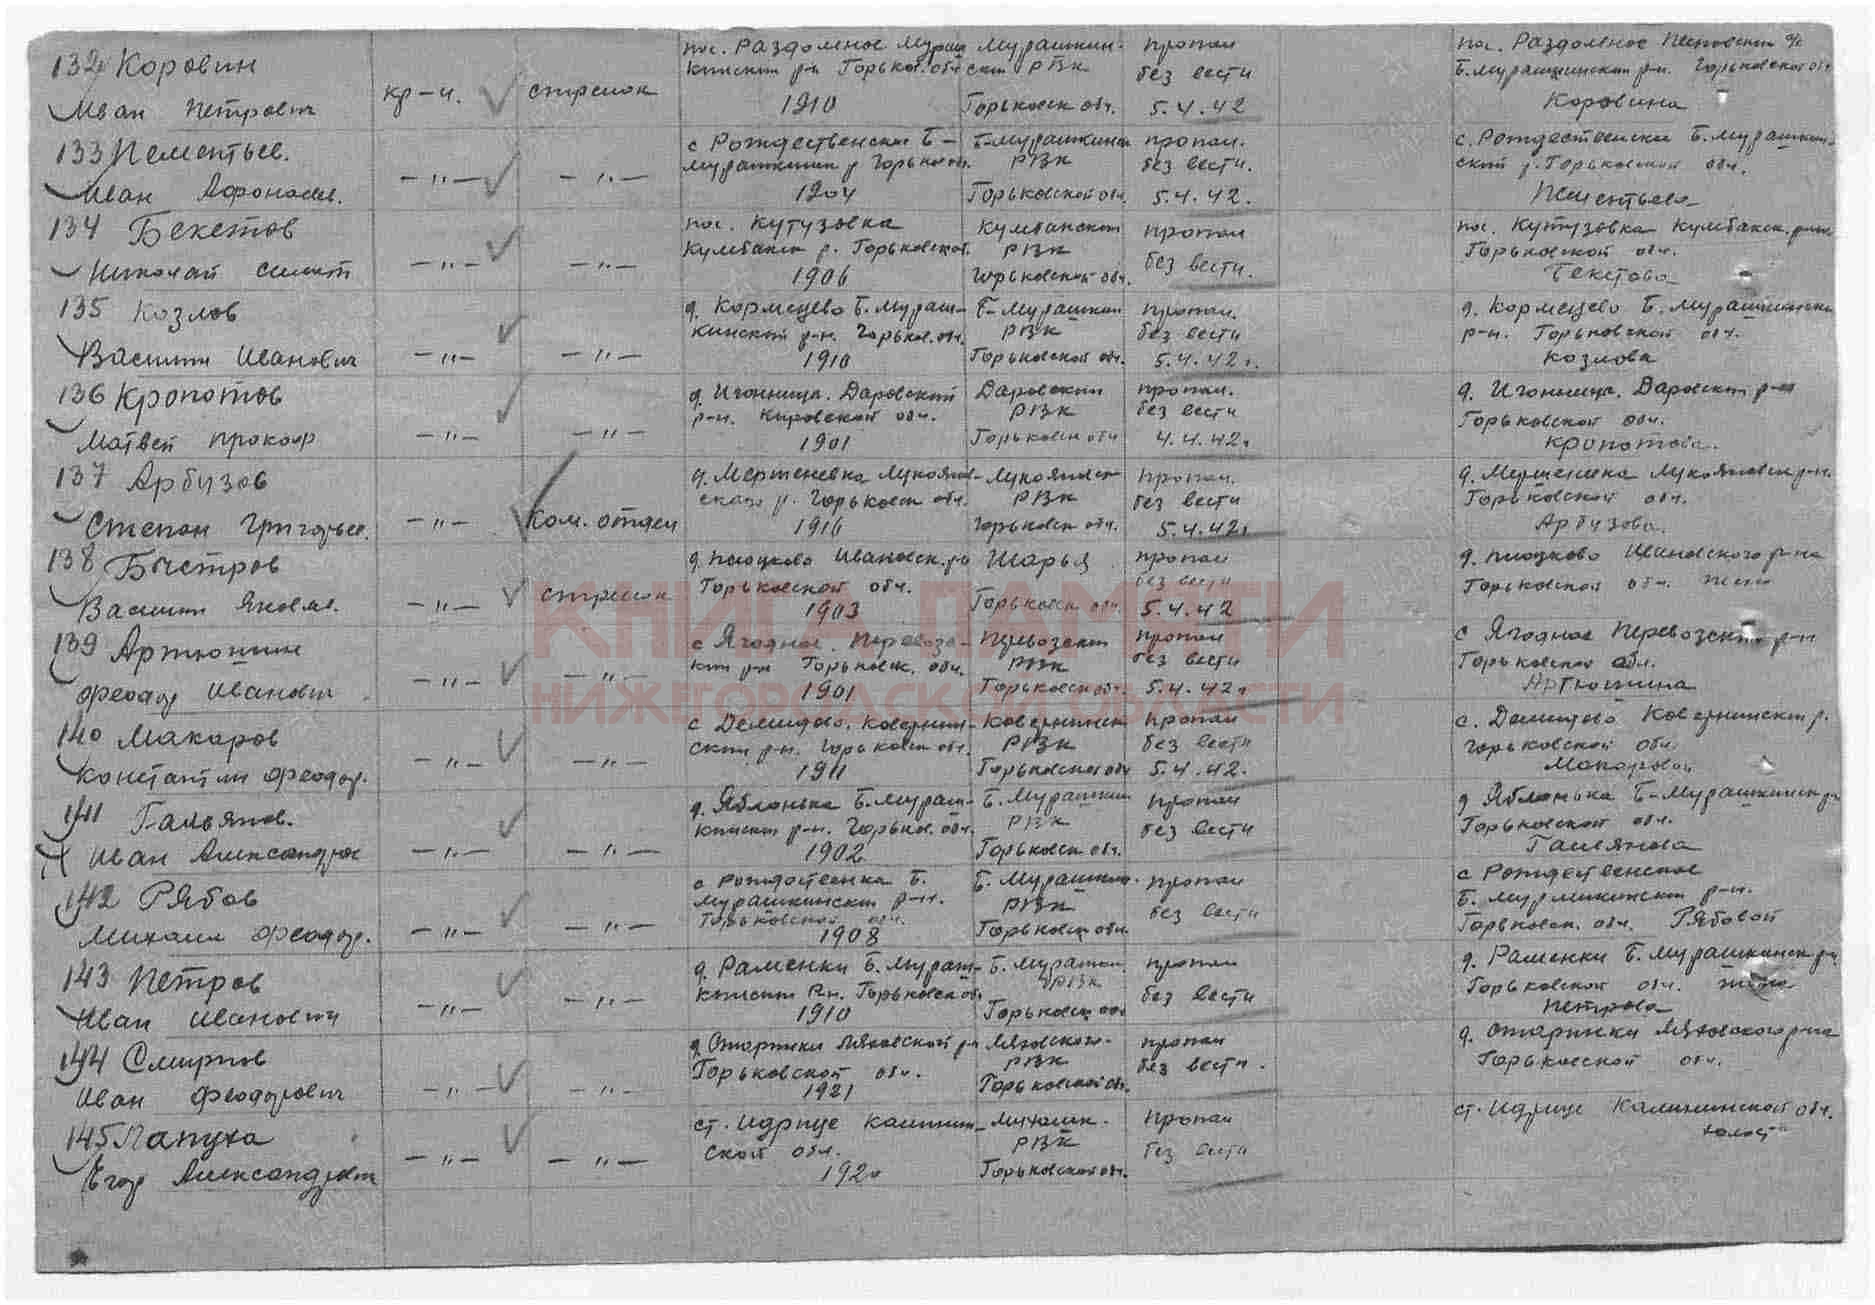 132 Коровин
Иван Петрович
кр-ц. стрелок
пос. Раздольное Мураш
кинский р-н Горьков. обл
1910
Мурашкин-
ский РВК
Горьковск обл.
пропал
без вести
5.4.42
пос. Раздольное
Б. Мурашкинский р-н. Горьковской обл
Коровина
133
Иван Афонасьев.
—"— —"—
с Рождественский Б-
мурашкинский р Горьков обл.
1904
Б-Мурашкинский
РВК
Горьковской обл.
пропал.
без вести.
5.4.42.
с. Рождественский Б. Мурашкин-
ский р. Горьковской обл.
134 Бекетов
Николай
—"— —"—
пос. Кутузовка
Кулебакск р. Горьковской.
1906
РВК
Горьковской обл.
пропал
без вести.
пос. Кутузовка Кулебакск. р-на
Горьковской обл.
Бекетова
135 Козлов
Василий Иванович
—"— —"—
д. Кормецево Б. Мураш-
кинский р-н. Горьков. обл.
1910
Б-Мурашкин
РВК
Горьковской обл.
пропал.
без вести
5.4.42 г.
д. Кормецево Б. Мурашкински
р-н. Горьковской обл.
Козлова
136 Кропотов
Матвей Прокоф
—"— —"—
д. Игонница. Даровский
р-н. Кировской обл.
1901
Даровский
РВК
Горьковск обл
пропал.
без вести
4.4.42г
д. Игонница. Даровский р-н
Горьковской обл.
Кропотова.
137 Арбузов
Степан Григорьев.
—"— Ком. отдел
д. Мерлиновка Лукоянов-
ского р. Горьковск обл.
1916
Лукояновск
РВК
Горьковск обл.
пропал.
без вести
5.4.42г
Лукояновск р-н.
Горьковской обл.
Арбузова.
138 Быстров
Василий Яковл.
—"— стрелок
Ивановск. р-н
Горьковской обл.
1903
Шарья
Горьковск обл.
пропал
без вести
5.4.42
Ивановского р-на
Горьковской обл. жена
139 Артюшин
Феодор Иванович
—"— —"—
с Ягодное. Перевоз-
кий р-н Горьковск. обл.
1901
Перевозский
РВК
Горьковск обл.
пропал
без вести
5.4.42г
с Ягодное Перевозский р-н
Горьковской обл.
Артюшина
140 Макаров
Константин Феодор.
—"— —"—
с Демидово. Ковернин-
ский р-н. Горьковск обл.
1911
Ковернинск
РВК
Горьковской обл
пропал
без вести
5.4.42.
с. Демидово Ковернинский р.
Горьковской обл.
Макарова
141 Гальянов.
Иван Александров
—"— —"—
д. Яблонька Б. Мураш-
кинский р-н. Горьков. обл.
1902
Б. Мурашкин
РВК
Горьковск обл.
пропал
без вести
д Яблонька Б-Мурашкинск р-н
Горьковской обл.
Гальянова
142 Рябов
Михаил Феодор.
—"— —"—
с Рождественка Б.
Мурашкинский р-н.
Горьковской обл.
1908
Б. Мурашкин.
РВК
Горьковск обл.
пропал
без вести
с Рождественское
Б. Мурашкинский р-н.
Горьковск. обл. Рябовой
143 Петров
Иван Иванович
—"— —"—
д. Раменки Б. Мураш-
кинский Рн. Горьковск об.
1910
Б. Мурашкин.
РВК
Горьковск обл
пропал
без вести
д. Раменки Б. Мурашкинск р-н
Горьковской обл. жена
Петрова
144 Смирнов
Иван Феодорович
—"— —"—
д. Старинки Ляховской р-н
Горьковской обл.
1921
Ляховского-
РВК
Горьковской обл.
пропал
без вести.
д. Старинки Ляховского р-на
Горьковской обл.
145 Лапуха
Егор Александрович
—"— —"—
ст. Идрице Калинин-
ской обл.
1920
РВК
Горьковской обл.
пропал
без вести
ст. Идрице Калининской обл.
холост
КНИГА ПАМЯТИ
НИЖЕГОРОДСКОЙ ОБЛАСТИ